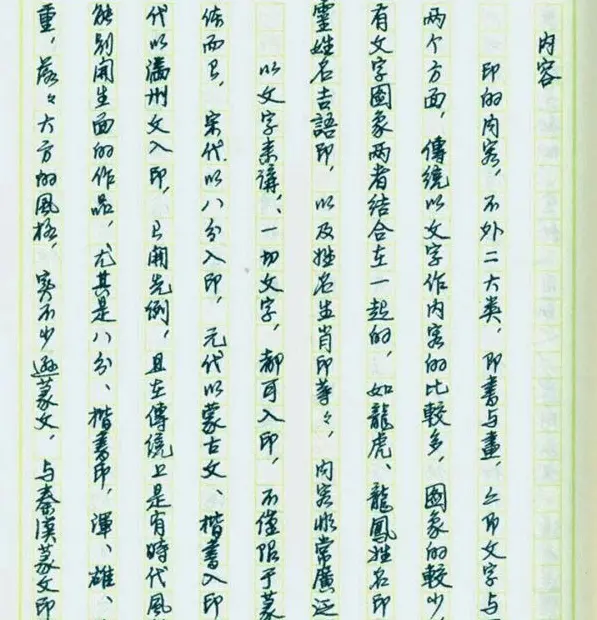 内容
印的内容，不外二大类，即書与畫，亦即文字与
两个方面，傳統以文字作内容的比較多，圖象的較少
有文字圖象两者结合在一起的，如龍虎、龍鳳姓名印
靈姓名吉語印，以及姓名生肖印等々，内容非常廣泛
以文字来講，一切文字，都可入印，不僅限于篆
而已，宋代以八分入印，元代以蒙古文、楷書入印
代以滿州文入印，已開先例，且在傳统上是有時代風
能别開生面的作品，尤其是八分、楷書印，渾、雄、
重，落々大方的風格，實不少遜篆文，与秦漢篆文印